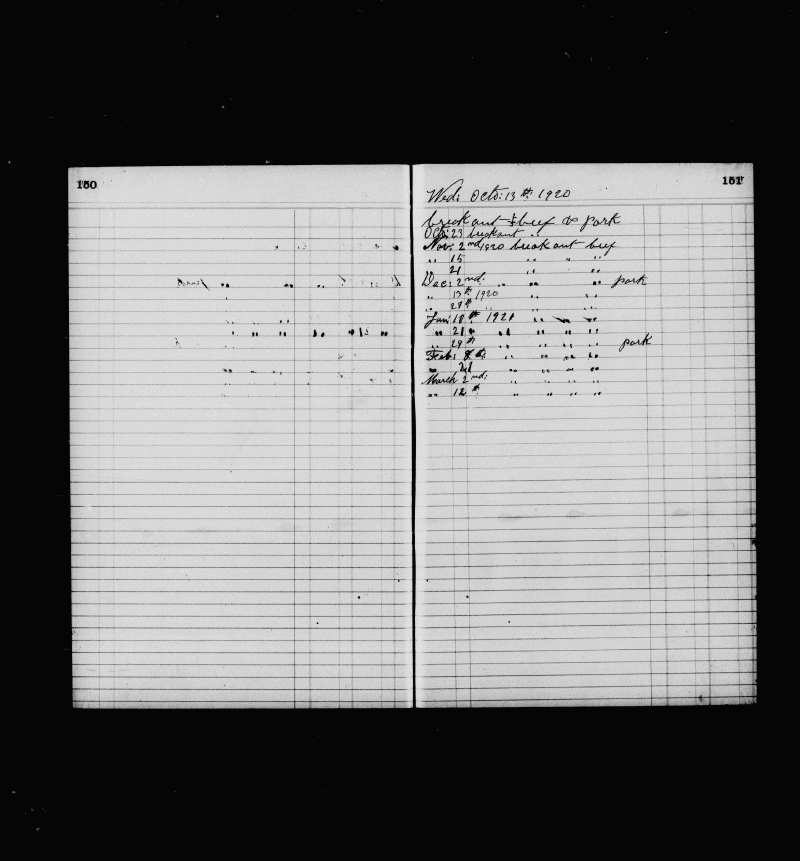 150
151
Wed: Octo: 13th 1920
break out beef & pork
Oct: 23 breakout "
Nov: 2nd 1920 break out beef
" 15 " " "
21 " "
Dec: 2nd " " " pork
" 13th 1920 " "
" 28th " " "
Jan: 18th 1921 " " "
" 21 " " " " "
" 29th " " " " pork
Feb: 8th " " " "
" " " " "
March 2nd: " " " "
" 12th " " " "